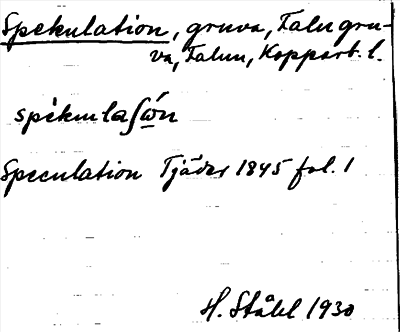 Spekulation, gruva, Falu gru-
va, Falun, Kopparb. l.
spèkulaʃώ̲n
Speculation Tjäder 1845 fol. 1
H. Ståhl 1930